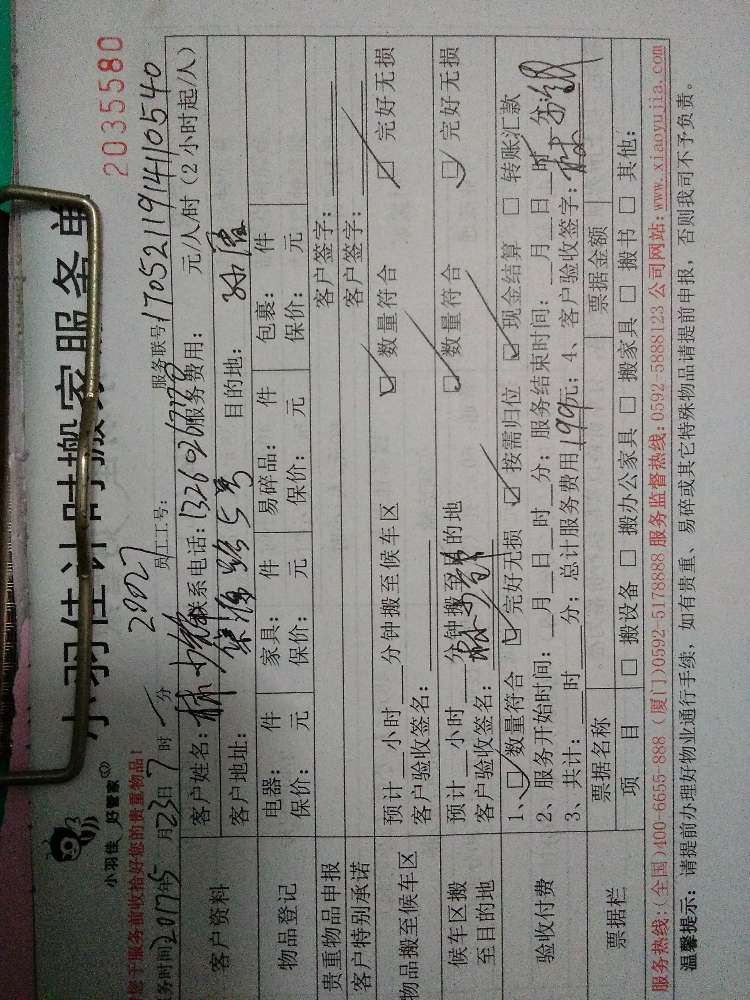 小羽佳 好管家
小羽佳计时搬家服务单
2035580
您于服务前收拾好您的贵重物品!
20027
员工工号:
服务联号:170521191410540
务时间2017年5月23日7时 分
元/人/时(2小时起/人)
客户资料
客户姓名: 联系电话:13260267178服务费用:
客户地址: 5号 目的地:
物品登记
电器: 件 家具: 件 易碎品: 件 包裹: 件
保价: 元 保价: 元 保价: 元 保价: 元
贵重物品申报 客户签字:
客户特别承诺 客户签字:
物品搬至候车区
预计 小时 分钟搬至候车区 数量符合 完好无损
客户验收签名:
候车区搬至目的地
预计 小时 分钟搬至目的地 数量符合 完好无损
客户验收签名:
验收付费
1、数量符合 完好无损 按需归位 现金结算 转账汇款
2、服务开始时间: 月 日 时 分;服务结束时间: 月 日 时 分;
3、共计: 时 分;总计服务费用199元;4、客户验收签字:
票据栏
票据名称 票据金额
项 目 搬设备 搬办公家具 搬家具 搬书 其他:
服务热线:(全国)400-6655-888 (厦门)0592-5178888 服务监督热线:0592-5888123 公司网站:www.xiaoyujia.com
温馨提示: 请提前办理好物业通行手续,如有贵重、易碎或其它特殊物品请提前申报,否则我司不予负责。